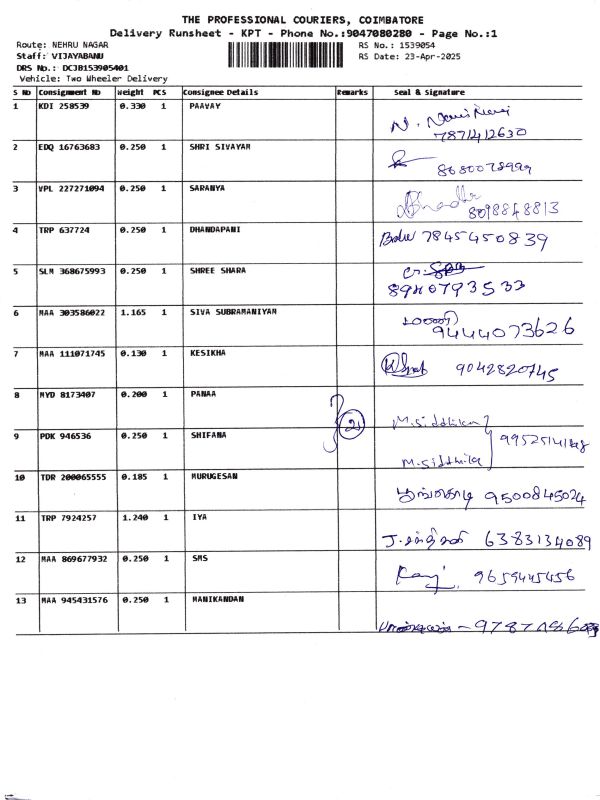 THE PROFESSIONAL COURIERS, COIMBATORE
Delivery Runsheet - KPT - Phone No.:9047080280 - Page No.:1
Route: NEHRU NAGAR RS No.: 1539054
Staff: VIJAYABANU RS Date: 23-Apr-2025
DRS No.: DCJB153905401
Vehicle: Two Wheeler Delivery
S No Consignment No Weight PCS Consignee Details Remarks Seal & Signature
1 KDI 258539 0.330 1 PAAVAY
7871412630
2 EDQ 16763683 0.250 1 SHRI SIVAYAM
8680078999
3 VPL 227271094 0.250 1 SARANYA
8098848813
4 TRP 637724 0.250 1 DHANDAPANI
Balu 7845450839
5 SLM 368675993 0.250 1 SHREE SHARA
8940793533
6 MAA 303586022 1.165 1 SIVA SUBRAMANIYAM
9444073626
7 MAA 111071745 0.130 1 KESIKHA
9042820745
8 MYD 8173407 0.200 1 PANAA
2 M. Siddhika
9 PDK 946536 0.250 1 SHIFANA
M. Siddhika
10 TDR 200065555 0.185 1 MURUGESAN
பூங்கொடி 9500845024
11 TRP 7924257 1.240 1 IYA
6383134089
12 MAA 869677932 0.250 1 SMS
9659445456
13 MAA 945431576 0.250 1 MANIKANDAN